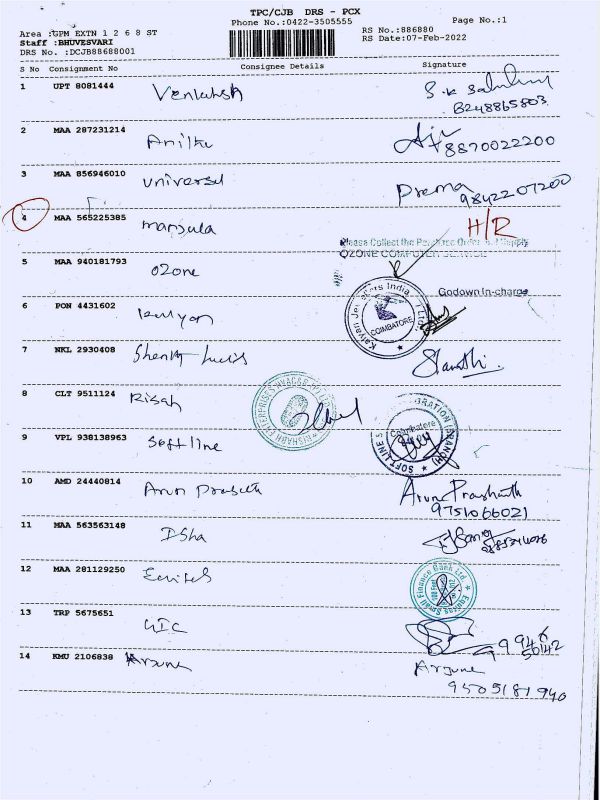 TPC/CJB DRS - PCX
Phone No.:0422-3505555
Page No.:1
Area :GPM EXTN 1 2 6 8 ST
RS No.:886880
Staff :BHUVESVARI
RS Date:07-Feb-2022
DRS No. :DCJB88688001
S No Consignment No Consignee Details Signature
1 UPT 8081444 Venkatesh
8248865803
2 MAA 287231214
8870022200
3 MAA 856946010 Universal Prema
9842207200
4 MAA 565225385 Manjula H/R
Please Collect the Purchase Order and Supply
OZONE COMPUTER
5 MAA 940181793 Ozone
Godown In-charge
6 PON 4431602 Kalyan
Kalyan Jewellers India
COIMBATORE
7 NKL 2930408
8 CLT 9511124
RISHABH ENTERPRISES
9 VPL 938138963 Softline
Coimbatore
SOFT LINES
10 AMD 24440814 Arun Prasath Arun Prashanth
9751066021
11 MAA 563563148 Isha
12 MAA 281129250 Equitas
Equitas Small Finance Bank Ltd.
13 TRP 5675651 LIC
99946
50142
14 KMU 2106838 Arjune Arjune
9505181940